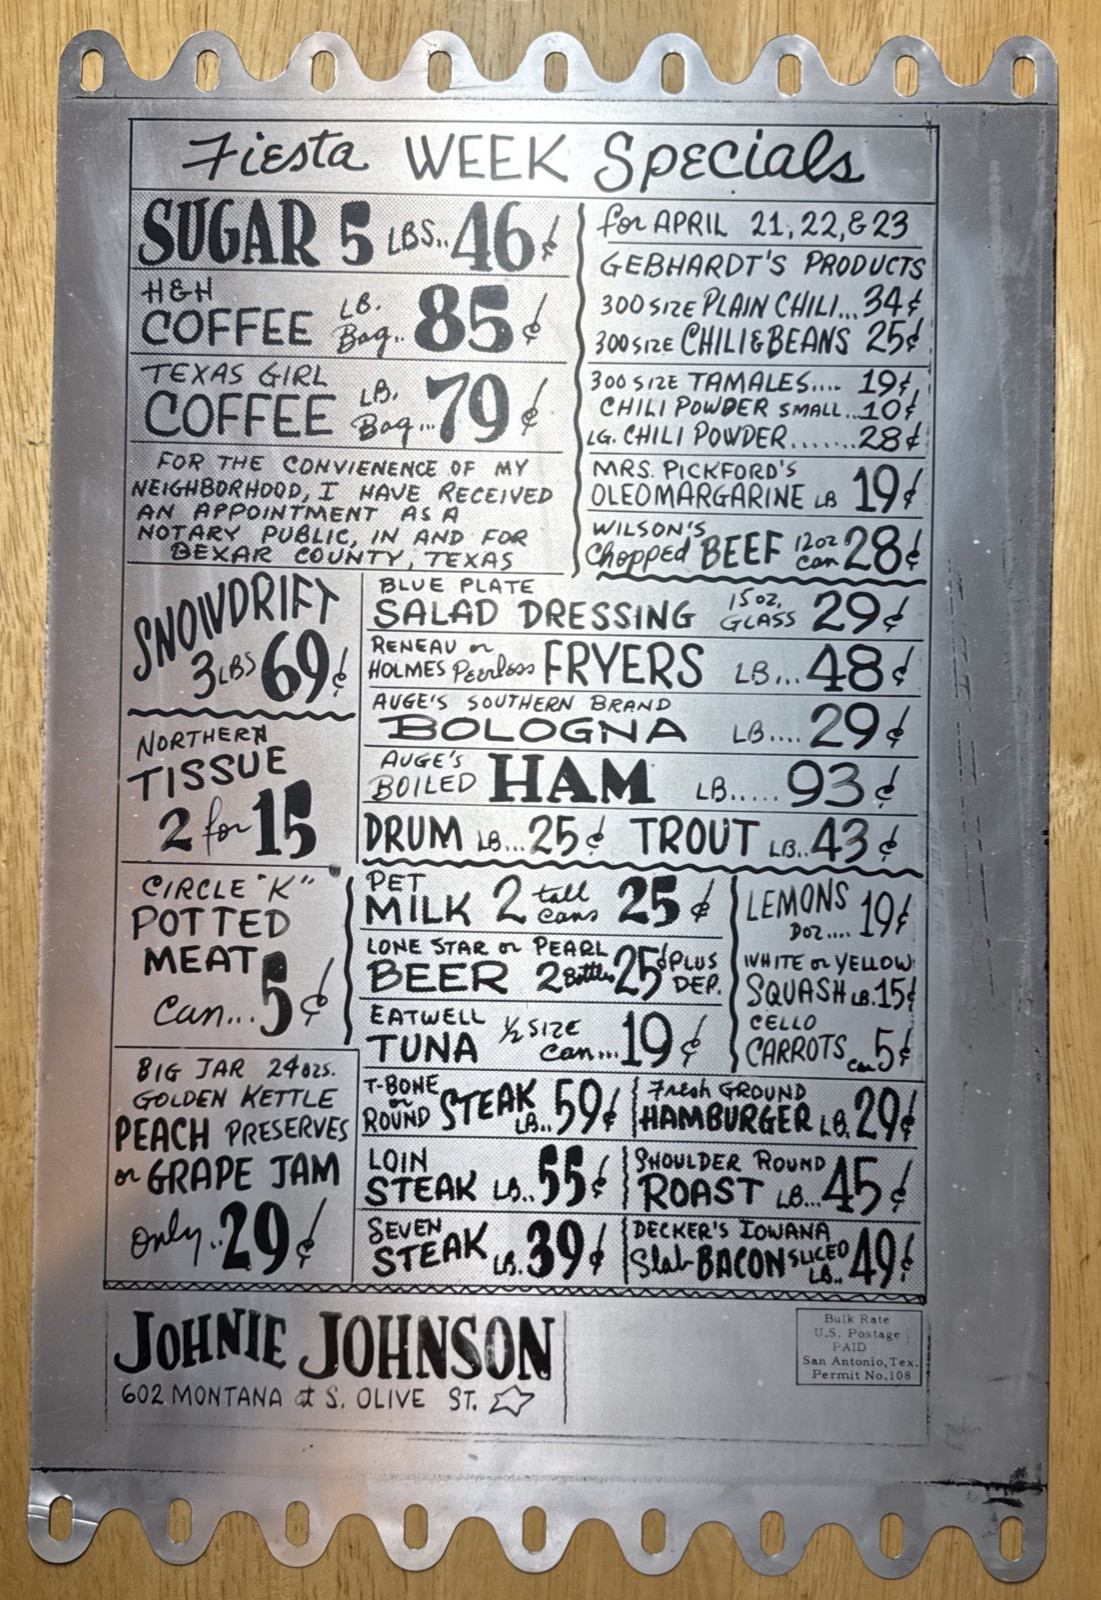 Fiesta WEEK Specials
SUGAR 5 LBS.. 46¢
H&H
COFFEE LB. Bag.. 85¢
TEXAS GIRL
COFFEE LB. Bag... 79¢
FOR THE CONVIENENCE OF MY
NEIGHBORHOOD, I HAVE RECEIVED
AN APPOINTMENT AS A
NOTARY PUBLIC, IN AND FOR
BEXAR COUNTY, TEXAS
for APRIL 21, 22, & 23
GEBHARDT'S PRODUCTS
300 SIZE PLAIN CHILI... 34¢
300 SIZE CHILI & BEANS 25¢
300 SIZE TAMALES.... 19¢
CHILI POWDER SMALL.. 10¢
LG. CHILI POWDER....... 28¢
MRS. PICKFORD'S
OLEOMARGARINE LB 19¢
WILSON'S
Chopped BEEF 12 oz can 28¢
SNOWDRIFT
3 LBS 69¢
NORTHERN
TISSUE
2 for 15
BLUE PLATE
SALAD DRESSING 15 oz. GLASS 29¢
RENEAU or
HOLMES Peerless FRYERS LB... 48¢
AUGE'S SOUTHERN BRAND
BOLOGNA LB.... 29¢
AUGE'S
BOILED HAM LB..... 93¢
DRUM LB... 25¢ TROUT LB.. 43¢
CIRCLE "K"
POTTED
MEAT
Can... 5¢
BIG JAR 24 ozs.
GOLDEN KETTLE
PEACH PRESERVES
or GRAPE JAM
Only.. 29¢
PET
MILK 2 tall cans 25¢
LONE STAR or PEARL
BEER 2 Bottles 25¢ PLUS DEP.
EATWELL
TUNA ½ SIZE Can... 19¢
LEMONS
DOZ.... 19¢
WHITE or YELLOW
SQUASH LB. 15¢
CELLO
CARROTS 5¢
T-BONE
or
ROUND STEAK LB.. 59¢
Fresh GROUND
HAMBURGER LB. 29¢
LOIN
STEAK LB.. 55¢
SHOULDER ROUND
ROAST LB... 45¢
SEVEN
STEAK LB. 39¢
DECKER'S IOWANA
Slab BACON SLICED LB.. 49¢
JOHNIE JOHNSON
602 MONTANA at S. OLIVE ST.
Bulk Rate
U.S. Postage
PAID
San Antonio, Tex.
Permit No. 108